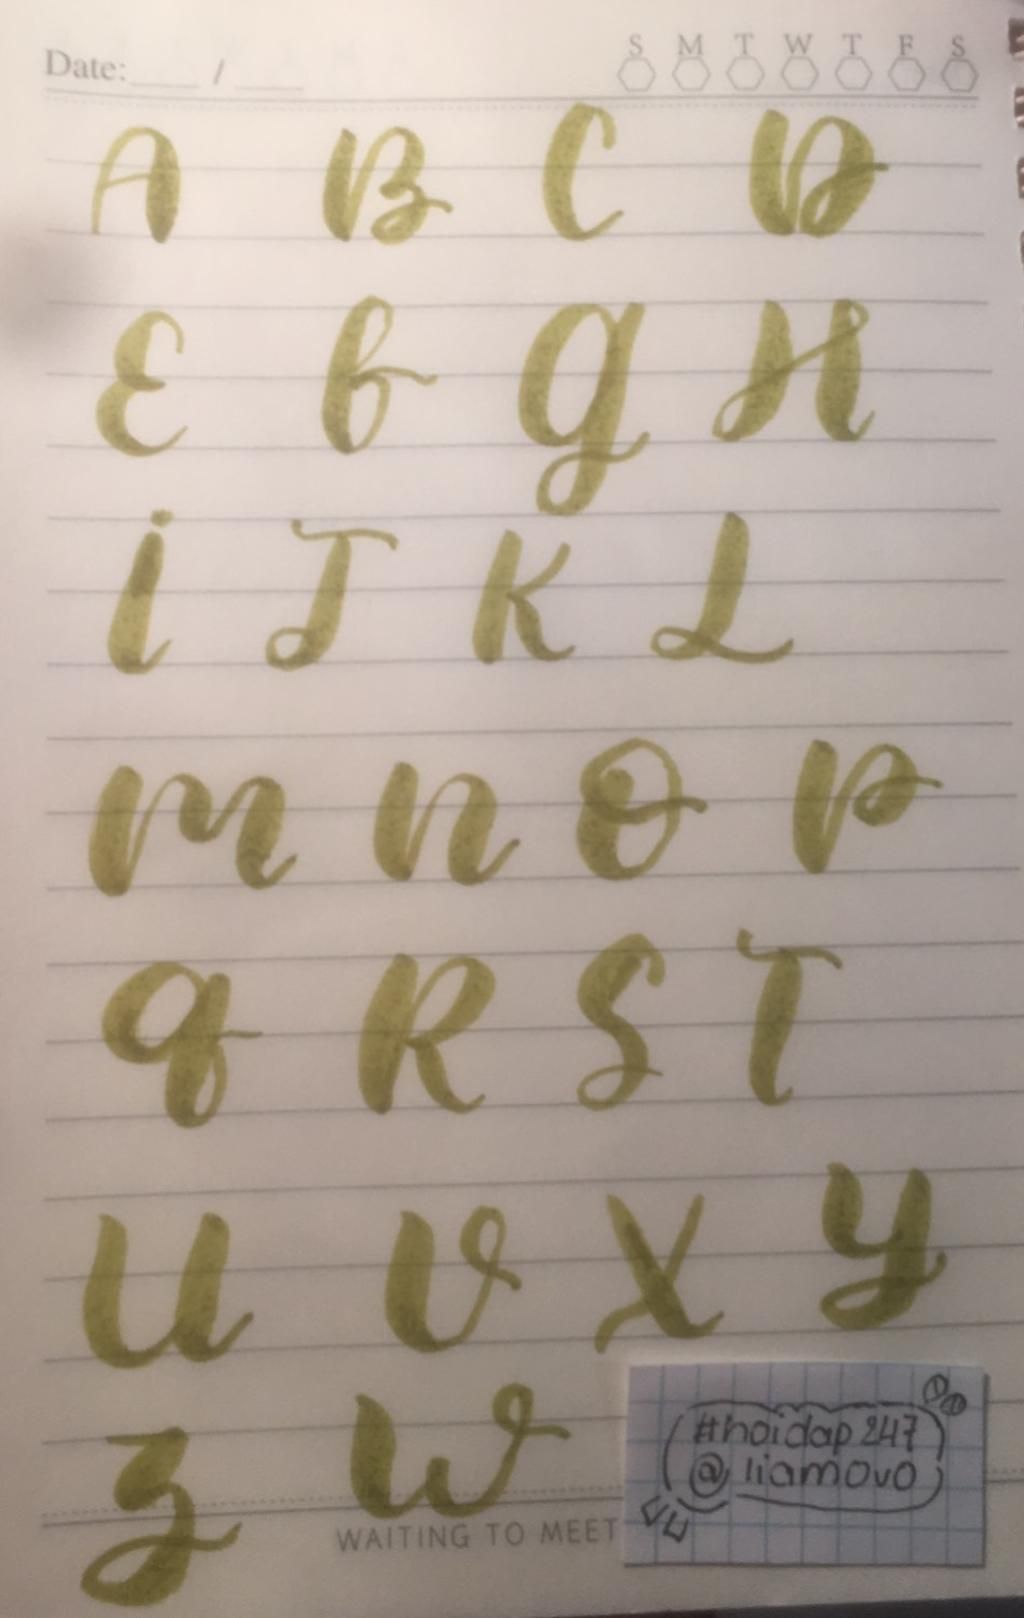 Date:____ / ____
S M T W T F S
A B C D
E F G H
i J K L
m n O P
q R S T
U V X Y
z W
#hoidap247
@liamovo
WAITING TO MEET